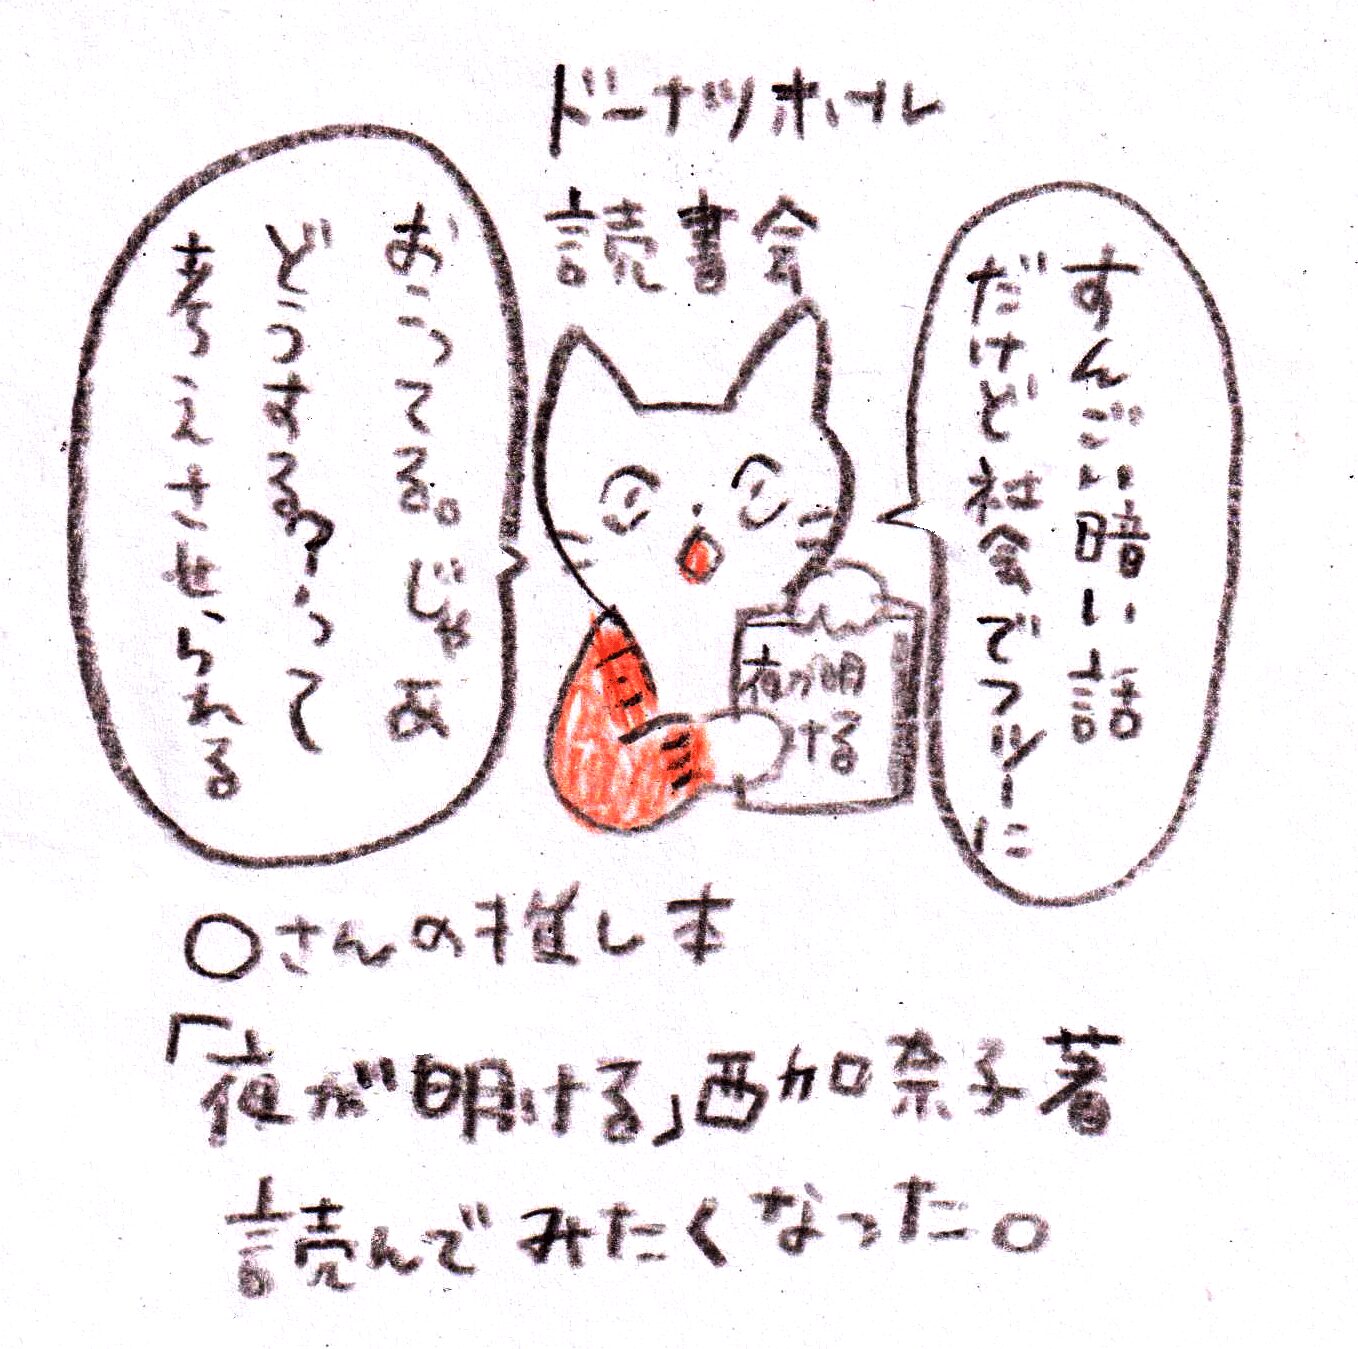 ドーナツホール
読書会
すんごい暗い話
だけど社会でフツーに
おこってる。じゃあ
どうする?って
考えさせられる
夜が明
ける
○さんの推し本
「夜が明ける」西加奈子著
読んでみたくなった。